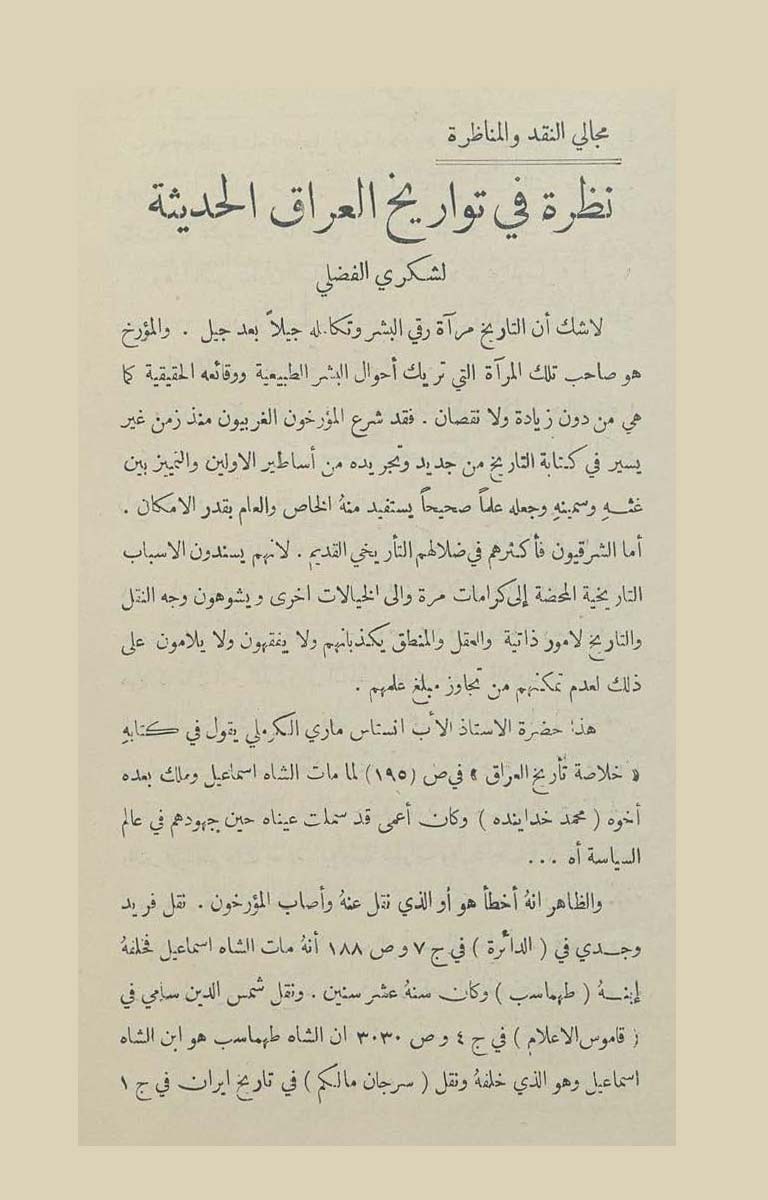 مجالي النقد والمناظرة
نظرة في تواريخ العراق الحديثة
لشكري الفضلي
لاشك أن التاريخ مرآة رقي البشر وتكامله جيلاً بعد جيل . والمؤرخ
هو صاحب تلك المرآة التي تريك أحوال البشر الطبيعية ووقائعه الحقيقية كما
هي من دون زيادة ولا نقصان . فقد شرع المؤرخون الغربيون منذ زمن غير
يسير في كتابة التاريخ من جديد وتجريده من أساطير الاولين والتمييز بين
غثهِ وسمينهِ وجعله علماً صحيحاً يستفيد منهُ الخاص والعام بقدر الامكان .
أما الشرقيون فأكثرهم في ضلالهم التأريخي القديم . لانهم يسندون الاسباب
التاريخية المحضة إلى كرامات مرة والى الخيالات اخرى ويشوهون وجه النقل
والتاريخ لامور ذاتية والعقل والمنطق يكذبانهم ولا يفقهون ولا يلامون على
ذلك لعدم تمكنهم من تجاوز مبلغ علمهم .
هذا حضرة الاستاذ الأب انستاس ماري الكرملي يقول في كتابهِ
« خلاصة تأريخ العراق » في ص (١٩٥) لما مات الشاه اسماعيل وملك بعده
أخوه ( محمد خدابنده ) وكان أعمى قد سملت عيناه حين جهودهم في عالم
السياسة أه ...
والظاهر انهُ أخطأ هو أو الذي نقل عنهُ وأصاب المؤرخون . نقل فريد
وجدي في ( الدائرة ) في ج ٧ و ص ١٨٨ أنهُ مات الشاه اسماعيل فخلفهُ
إبنهُ ( طهماسب ) وكان سنهُ عشر سنين . ونقل شمس الدين سامي في
( قاموس الاعلام ) في ج ٤ و ص ٣٠٣٠ ان الشاه طهماسب هو ابن الشاه
اسماعيل وهو الذي خلفهُ ونقل ( سرجان مالكم ) في تاريخ ايران في ج ١